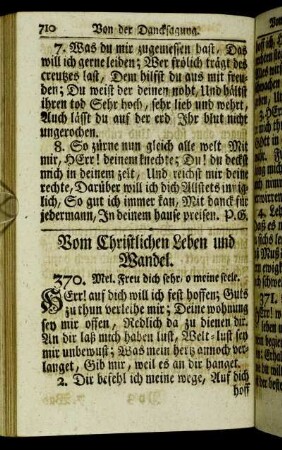 710 Von der Dancksagung.
7. Was du mir zugemessen hast, Das
will ich gerne leiden; Wer frölich trägt des
creutzes last, Dem hilfst du aus mit freu-
den; Du weist der deinen noht, Und hältst
ihren tod Sehr hoch, sehr lieb und wehrt,
Auch läßt du auf der erd Ihr blut nicht
ungerochen.
8. So zürne nun gleich alle welt Mit
mir, HErr! deinem knechte; Du! du deckst
mich in deinem zelt, Und reichst mir deine
rechte, Darüber will ich dich Allstets innig-
lich, So gut ich immer kan, Mit danck für
jedermann, In deinem hause preisen. P. G.
Vom Christlichen Leben und
Wandel.
370. Mel. Freu dich sehr, o meine seele.
HErr! auf dich will ich fest hoffen; Guts
zu thun verleihe mir; Deine wohnung
sey mir offen, Redlich da zu dienen dir.
An dir laß mich haben lust, Welt-lust sey
mir unbewust; Was mein hertz annoch ver-
langet, Gib mir, weil es an dir hanget.
2. Dir befehl ich meine wege, Auf dich
hoff